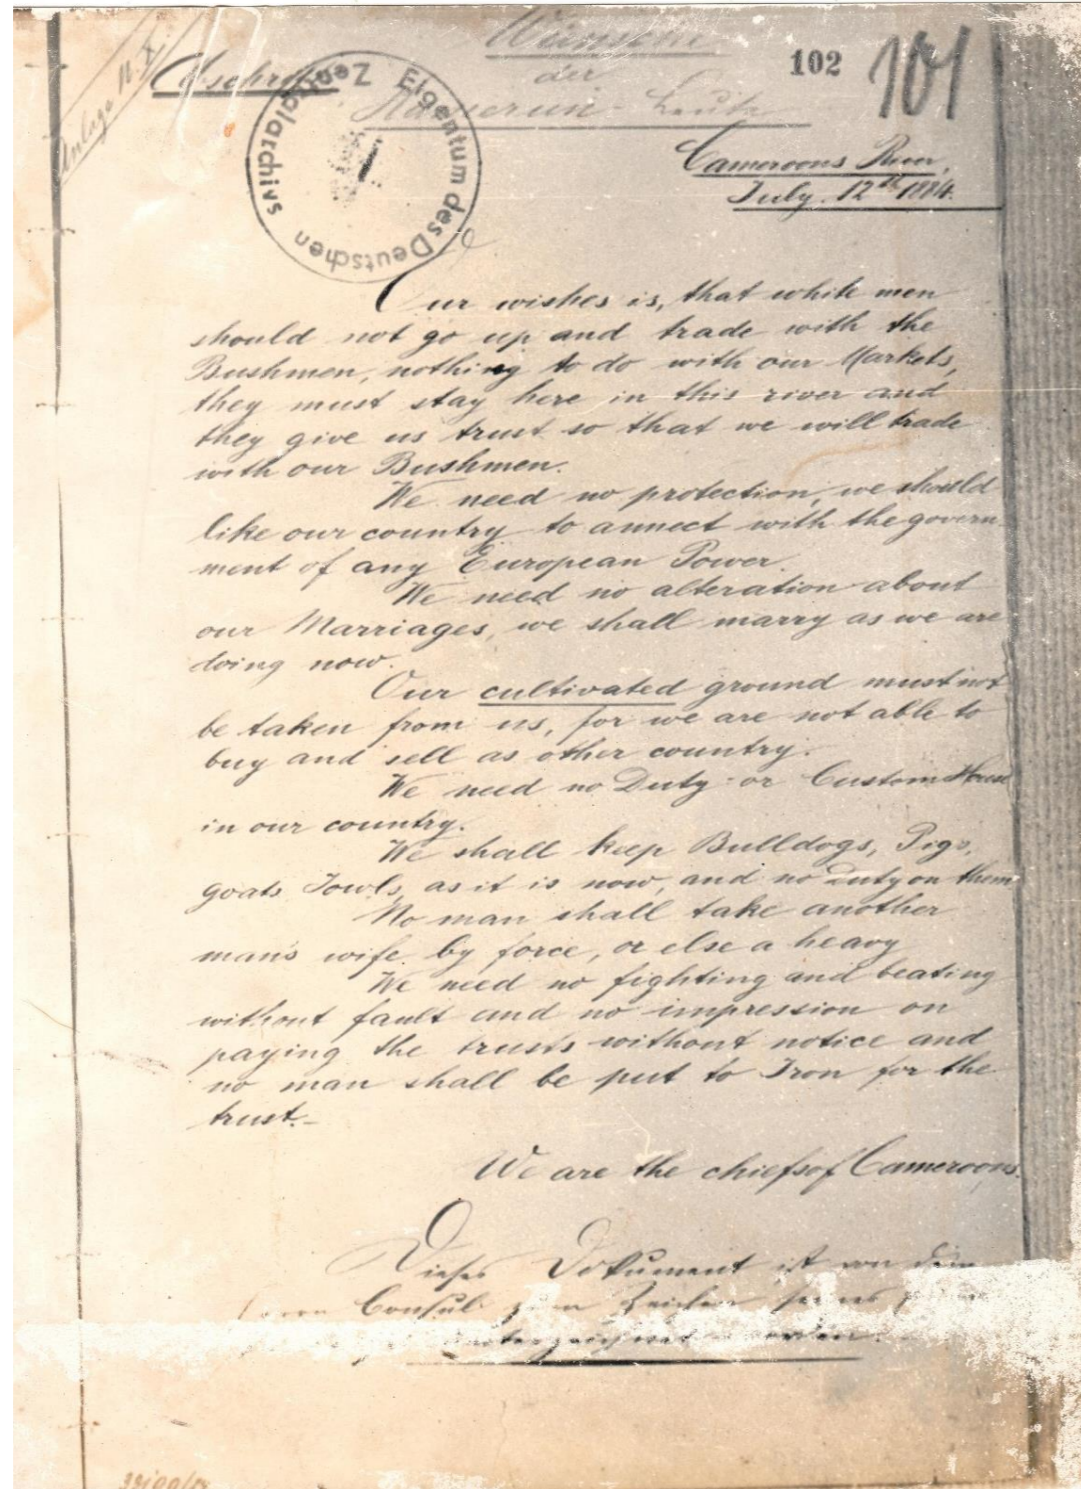 Anlage
Abschrift
Wünsche
der
Kamerun-Leute
102
101
Eigentum des Deutschen Zentralarchivs
Cameroons River,
July. 12th 1884.
Our wishes is, that white men
should not go up and trade with the
Bushmen, nothing to do with our Markets,
they must stay here in this river and
they give us trust so that we will trade
with our Bushmen.
We need no protection, we should
like our country to annect with the govern
ment of any European Power.
We need no alteration about
our Marriages, we shall marry as we are
doing now.
Our cultivated ground must not
be taken from us, for we are not able to
buy and sell as other country.
We need no Duty or Custom House
in our country.
We shall keep Bulldogs, Pigs,
goats Fowls, as it is now, and no Duty on them
No man shall take another
man's wife by force, or else a heavy
We need no fighting and beating
without fault and no impression on
paying the trusts without notice and
no man shall be put to Iron for the
trust.-
We are the chiefs of Cameroons.
Dieses Dokument ist von dem
Herrn Consul zum Zeichen seines
unterzeichnet worden.